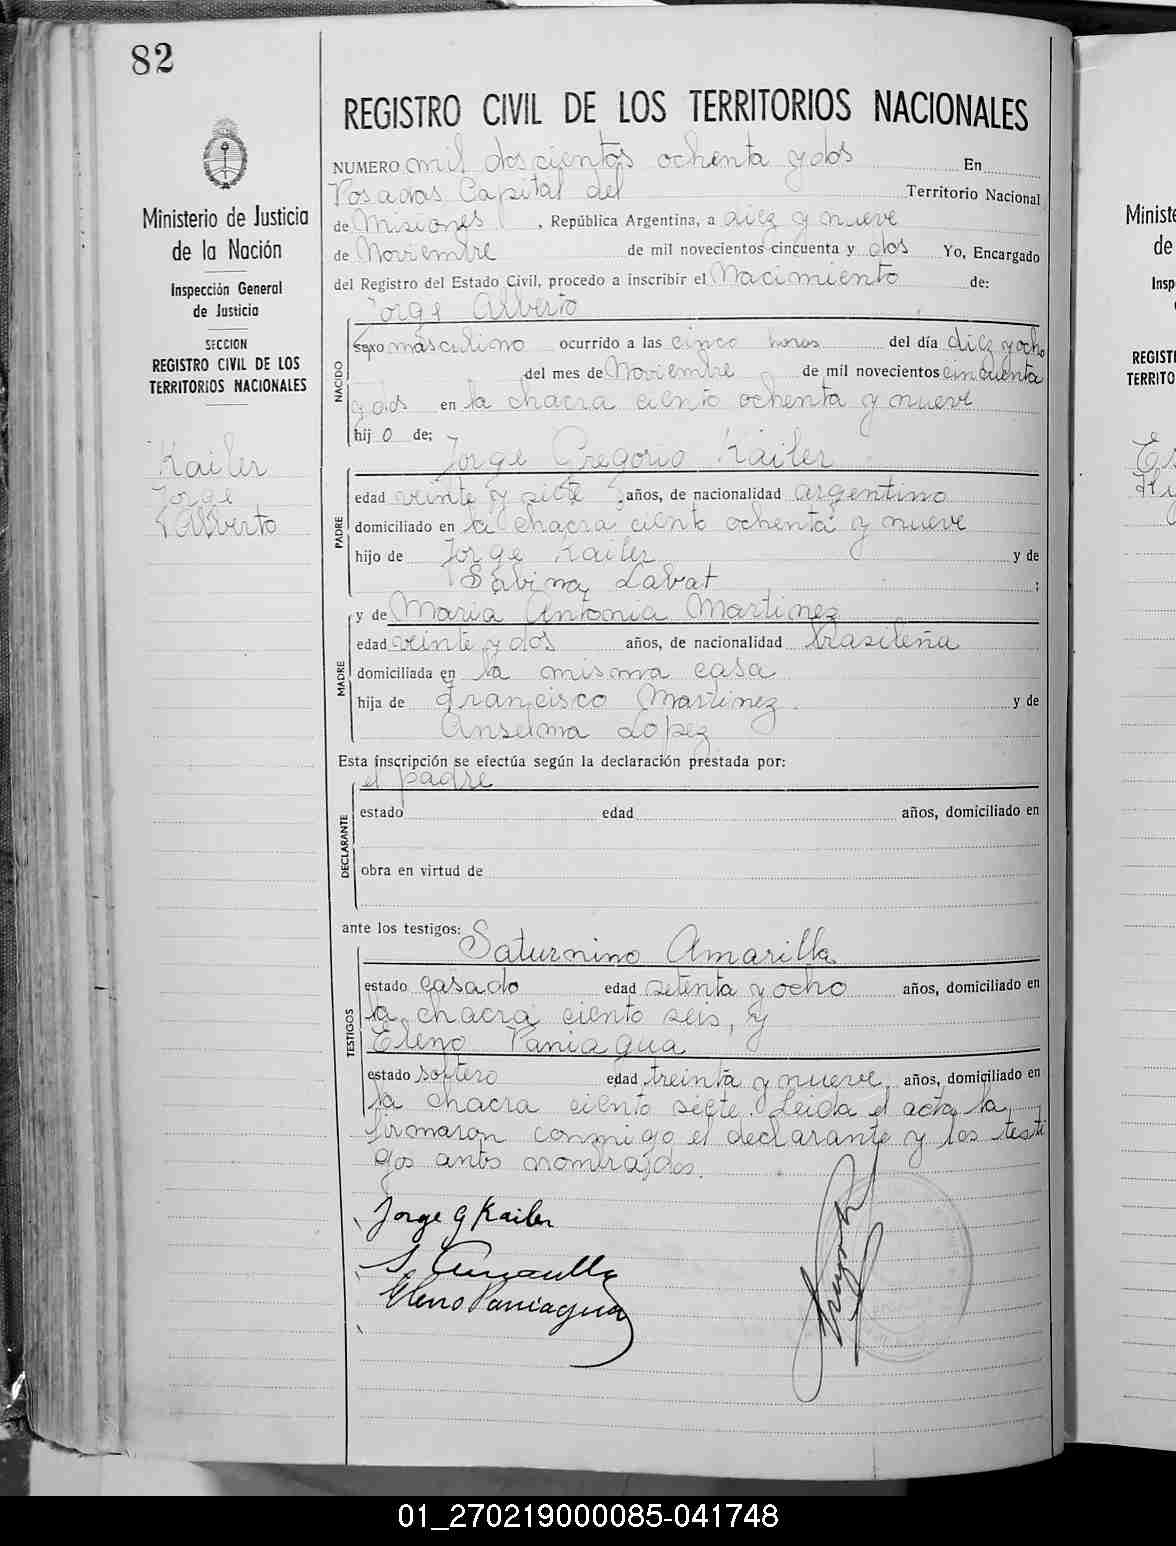 82
Ministerio de Justicia
de la Nación
Inspección General
de Justicia
SECCION
REGISTRO CIVIL DE LOS
TERRITORIOS NACIONALES
Kailer
Jorge
Alberto
REGISTRO CIVIL DE LOS TERRITORIOS NACIONALES
NUMERO mil doscientos ochenta y dos En
Posadas Capital del Territorio Nacional
de Misiones, República Argentina, a diez y nueve
de Noviembre de mil novecientos cincuenta y dos Yo, Encargado
del Registro del Estado Civil, procedo a inscribir el Nacimiento de:
Jorge Alberto
NACIDO
sexo masculino ocurrido a las cinco horas del día diez y ocho
del mes de Noviembre de mil novecientos cincuenta
y dos en la chacra ciento ochenta y nueve
hij o de:
Jorge Gregorio Kailer
PADRE
edad veinte y siete años, de nacionalidad argentino
domiciliado en la chacra ciento ochenta y nueve
hijo de Jorge Kailer y de
Sabina Labat ;
y de Maria Antonia Martinez
MADRE
edad veinte y dos años, de nacionalidad brasileña
domiciliada en la misma casa
hija de Francisco Martinez y de
Anselma Lopez
Esta inscripción se efectúa según la declaración prestada por:
el padre
DECLARANTE
estado edad años, domiciliado en
obra en virtud de
ante los testigos:
Saturnino Amarilla
TESTIGOS
estado casado edad setenta y ocho años, domiciliado en
la chacra ciento seis, y
Eleno Paniagua
estado soltero edad treinta y nueve años, domiciliado en
la chacra ciento siete. Leida el acta la
firmaron conmigo el declarante y los testi
gos antes nombrados.
Jorge G Kailer
S. Amarilla
Eleno Paniagua
Ministe
de
Insp
REGISTI
TERRITO
01_270219000085-041748